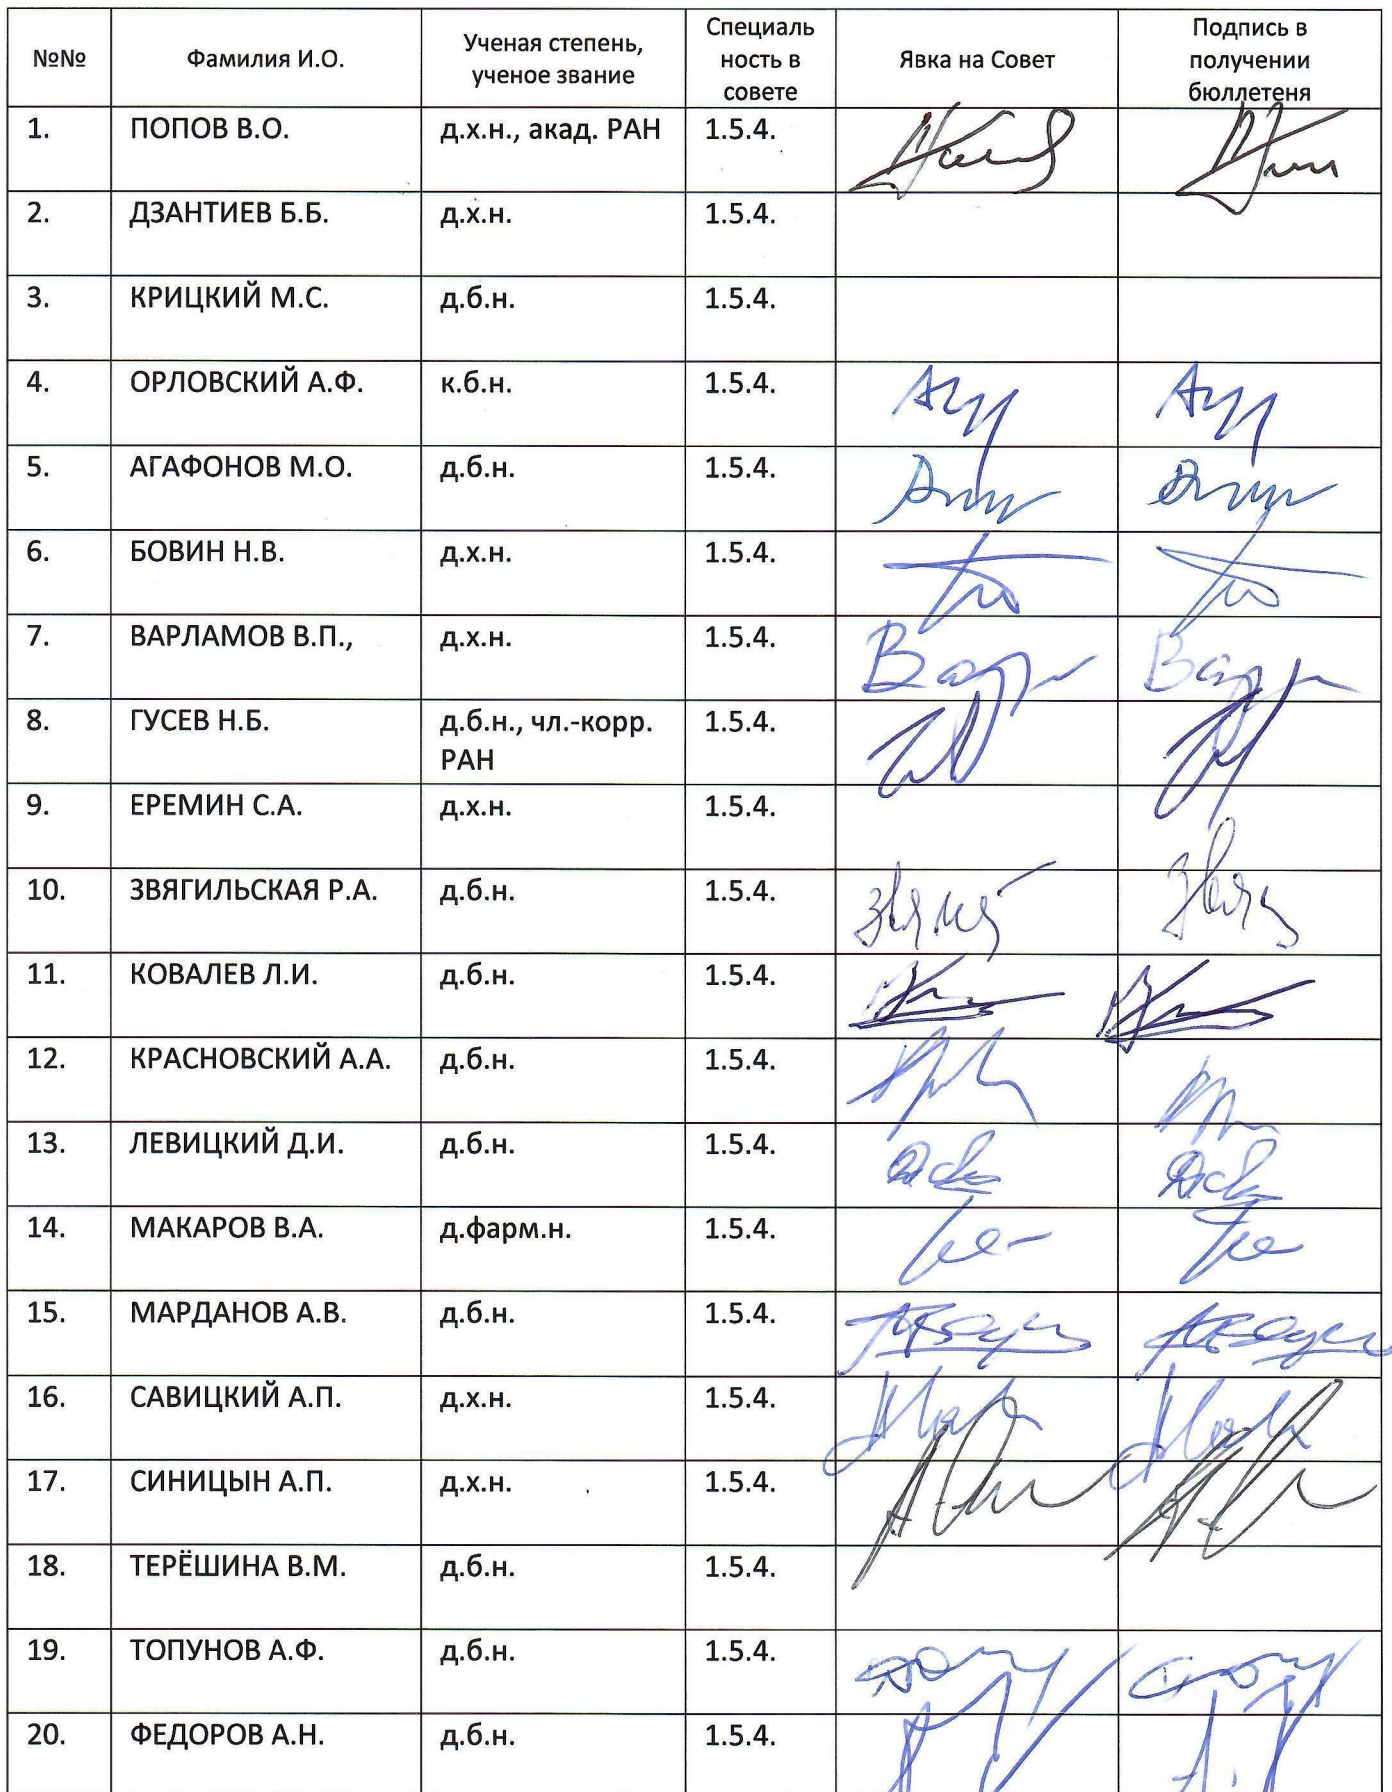 №№ Фамилия И.О. Ученая степень, ученое звание Специаль ность в совете Явка на Совет Подпись в получении бюллетеня
1. ПОПОВ В.О. д.х.н., акад. РАН 1.5.4.
2. ДЗАНТИЕВ Б.Б. д.х.н. 1.5.4.
3. КРИЦКИЙ М.С. д.б.н. 1.5.4.
4. ОРЛОВСКИЙ А.Ф. к.б.н. 1.5.4.
5. АГАФОНОВ М.О. д.б.н. 1.5.4.
6. БОВИН Н.В. д.х.н. 1.5.4.
7. ВАРЛАМОВ В.П., д.х.н. 1.5.4.
8. ГУСЕВ Н.Б. д.б.н., чл.-корр. РАН 1.5.4.
9. ЕРЕМИН С.А. д.х.н. 1.5.4.
10. ЗВЯГИЛЬСКАЯ Р.А. д.б.н. 1.5.4.
11. КОВАЛЕВ Л.И. д.б.н. 1.5.4.
12. КРАСНОВСКИЙ А.А. д.б.н. 1.5.4.
13. ЛЕВИЦКИЙ Д.И. д.б.н. 1.5.4.
14. МАКАРОВ В.А. д.фарм.н. 1.5.4.
15. МАРДАНОВ А.В. д.б.н. 1.5.4.
16. САВИЦКИЙ А.П. д.х.н. 1.5.4.
17. СИНИЦЫН А.П. д.х.н. 1.5.4.
18. ТЕРЁШИНА В.М. д.б.н. 1.5.4.
19. ТОПУНОВ А.Ф. д.б.н. 1.5.4.
20. ФЕДОРОВ А.Н. д.б.н. 1.5.4.